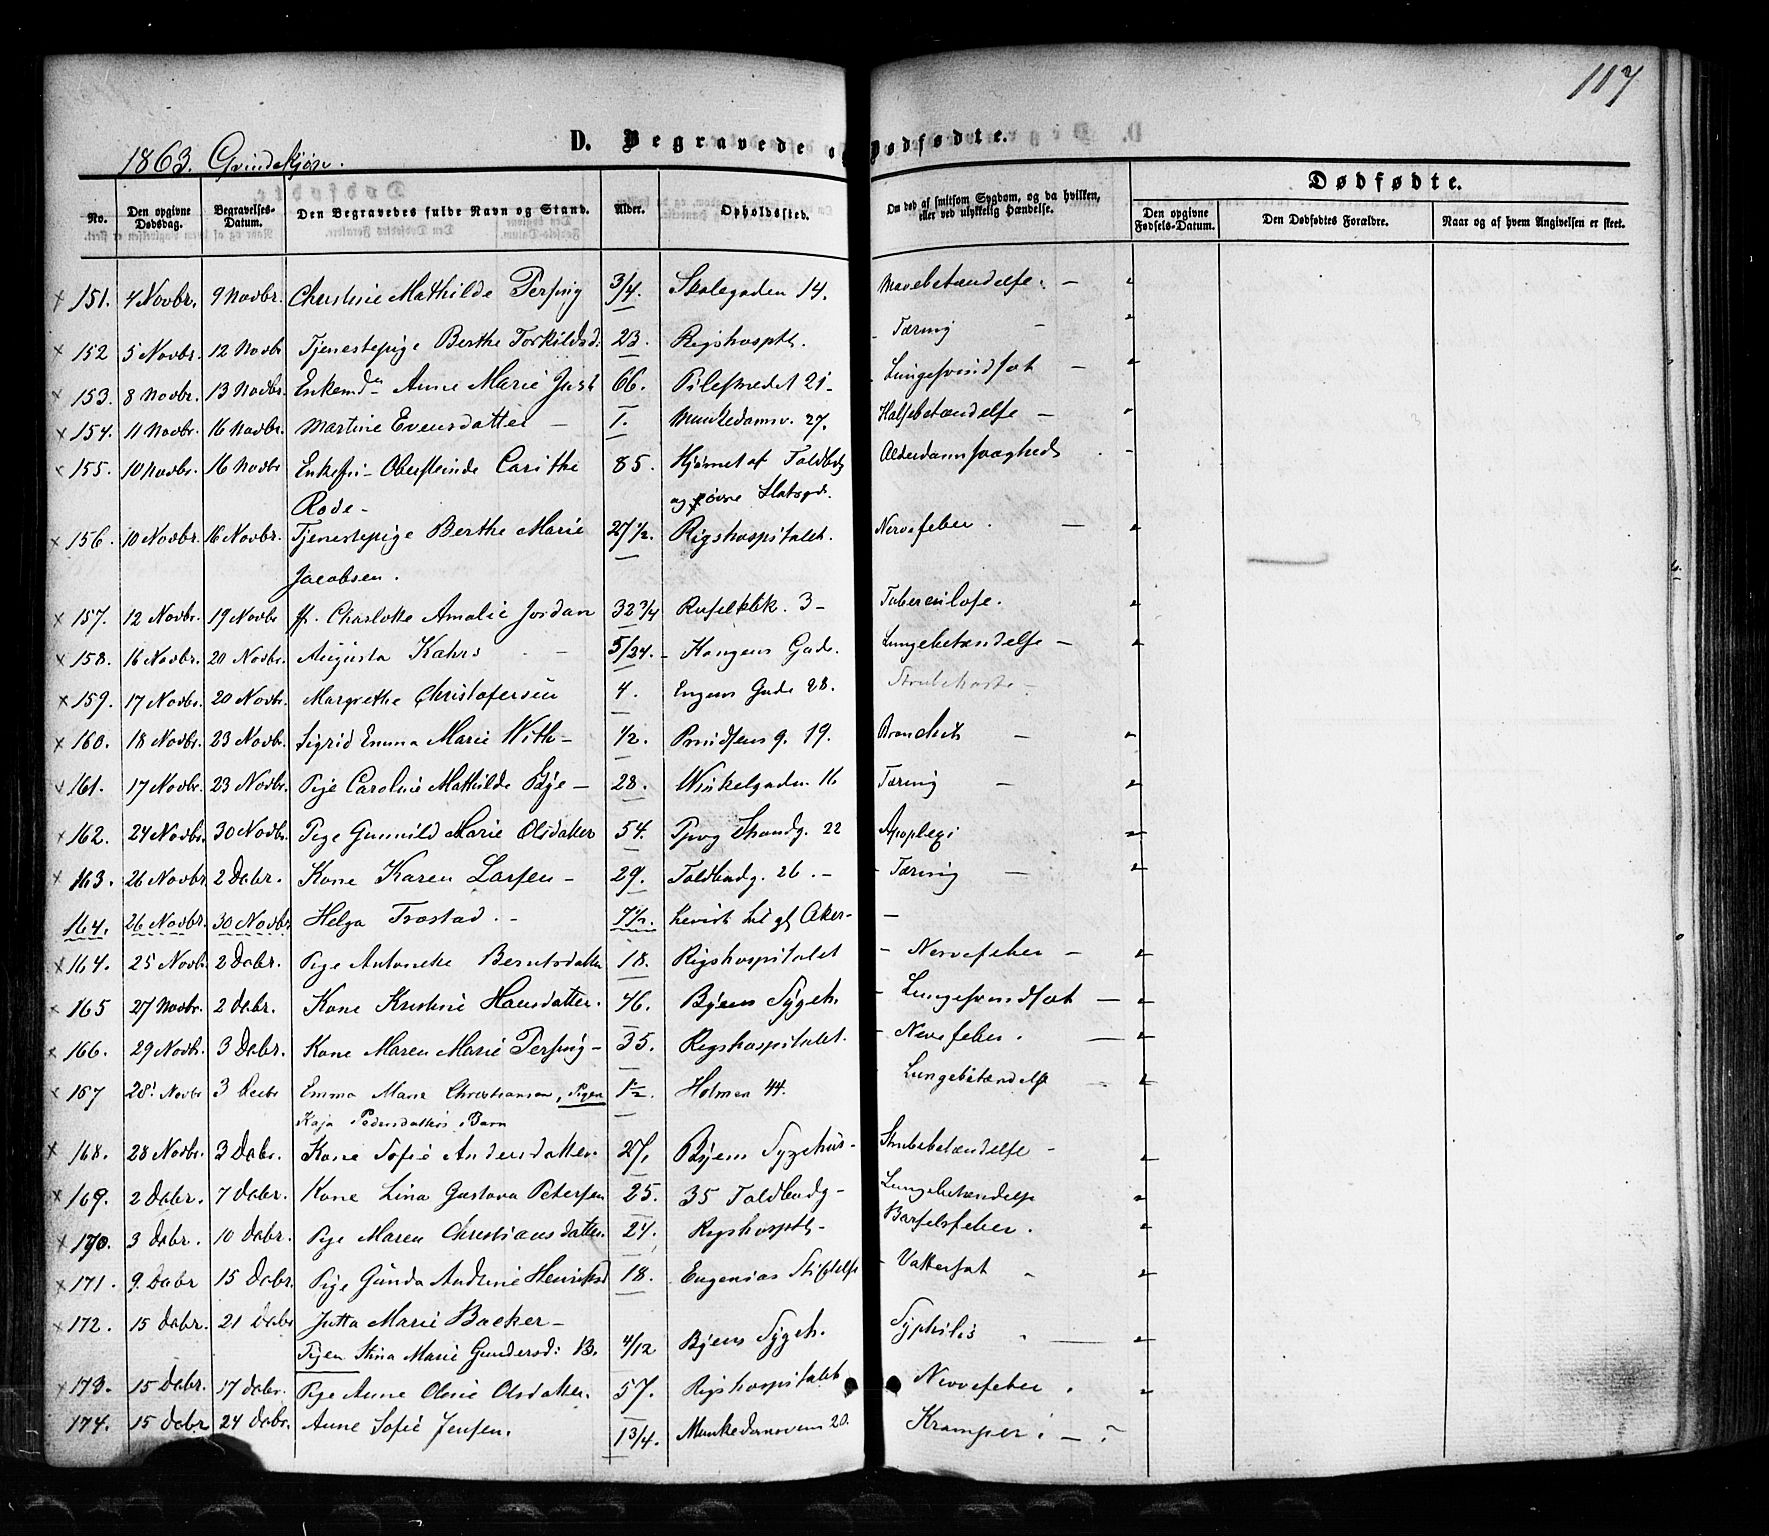 117
D. Begravede og Dødfødte.
1863. Qvindekjøn.
No. Den opgivne Dødsdag. Begravelses-Datum. Den Begravedes fulde Navn og Stand. Alder. Opholdssted. Om død af smitsom Sygdom, og da hvilken, eller ved ulykkelig Hændelse. Dødfødte.
Den opgivne Fødsels-Datum. Den Dødfødtes Forældre. Naar og af hvem Angivelsen er skeet.
151. 4 Novbr. 9 Novbr. Christine Mathilde 3/4. Skolegaden 14. Mavebetændelse. -
152 5 Novbr. 12 Novbr Tjenestepige Berthe Torkildsd. 23. Rigshosptl. Tæring -
153. 8 Novbr. 13 Novbr. Enkemd. Anne Marie Just 66. Pilestrædet 21- Lungesvindsot -
154. 11 Novbr. 16 Novbr. Martine Evensdatter - 1. Munkedamsv. 27. Halsebetændelse -
155. 10 Novbr. 16 Novbr Enkefru Carithe 85. Hjørnet af Toldbdg Alderdomssvaghed
Rode - og øvre Slotsgd.
156. 10 Novbr. 16 Novbr. Tjenestepige Berthe Marie 27 1/2. Rigshospitalet. Nervefeber. -
Jacobsen.
157. 12 Novbr. 19 Novbr fr. Charlotte Amalie Jordan 32 3/4 3- Tuberculose.
158. 16 Novbr. 20 Novbr. Augusta Kahrs - 5/24. Kongens Gade. Lungebetændelse -
159. 17 Novbr. 20 Novbr. Margrethe Christofersen 4. Engens Gade 28. Strubehoste -
160. 18 Novbr. 23 Novbr. Sigrid Emma Marie With - 1/2. Prindsens g. 19. Bronchit -
161. 17 Novbr. 23 Novbr. Pige Caroline Mathilde Bye - 28. Winkelgaden 16 Tæring -
162. 24 Novbr. 30 Novbr. Pige Gunnild Marie Olsdatter 54. Skondg. 22 Apoplexi
163. 26 Novbr. 2 Dcbr. Kone Karen Larsen - 29. Toldbodg. 26. - Tæring -
164. 26 Novbr. 30 Novbr. Helga Trostad. - 7 1/2. Aker -
164. 25 Novb. 2 Dcbr. Pige Antonette Berntsdatter 18. Rigshospitalet - Nervefeber -
165 27 Novbr. 2 Dcbr. Kone Kristine Hansdatter. 46. Byens Sygeh. - Lungesvindsot -
166. 29 Novbr. 3 Dcbr. Kone Maren Marie - 35. Rigshospitalet. - Nervefeber. -
167 28 Novbr 3 Decbr Emma Marie Christiansen, Pigen 1 1/2. Holmen 44. Lungebetændelse
Kaja Pedersdatters Barn
168. 28 Novbr. 3 Dcbr. Kone Sofie Andersdatter. 27. Byens Sygehus - Strubebetændelse -
169. 2 Dcbr. 7 Dcbr. Kone Lina Gustava Petersen 25. 35 Toldbodg - Lungebetændelse
170. 3 Dcbr. 10 Dcbr. Pige Maren Christiansdatter. 24. Rigshosptl - Barselfeber.
171. 9. Dcbr 15 Dcbr. Pige Gunda Andrine Henriksd 18. Eugenias Stiftelse - Vattersot -
172. 15 Dcbr. 21 Dcbr Jutta Marie Backer - Syphilis
Pigen Stina Marie Gundersd: B. 4/12 Byens Sygeh.
173. 15 Dcbr. 17 Dcbr. Pige Anne Oline Olsdatter. 57. Rigshospitalet Nervefeber.
174. 15 Dcbr 24 Dcbr. Anne Sofie Jensen. 1 3/4. Munkedamsveien 20. Kramper